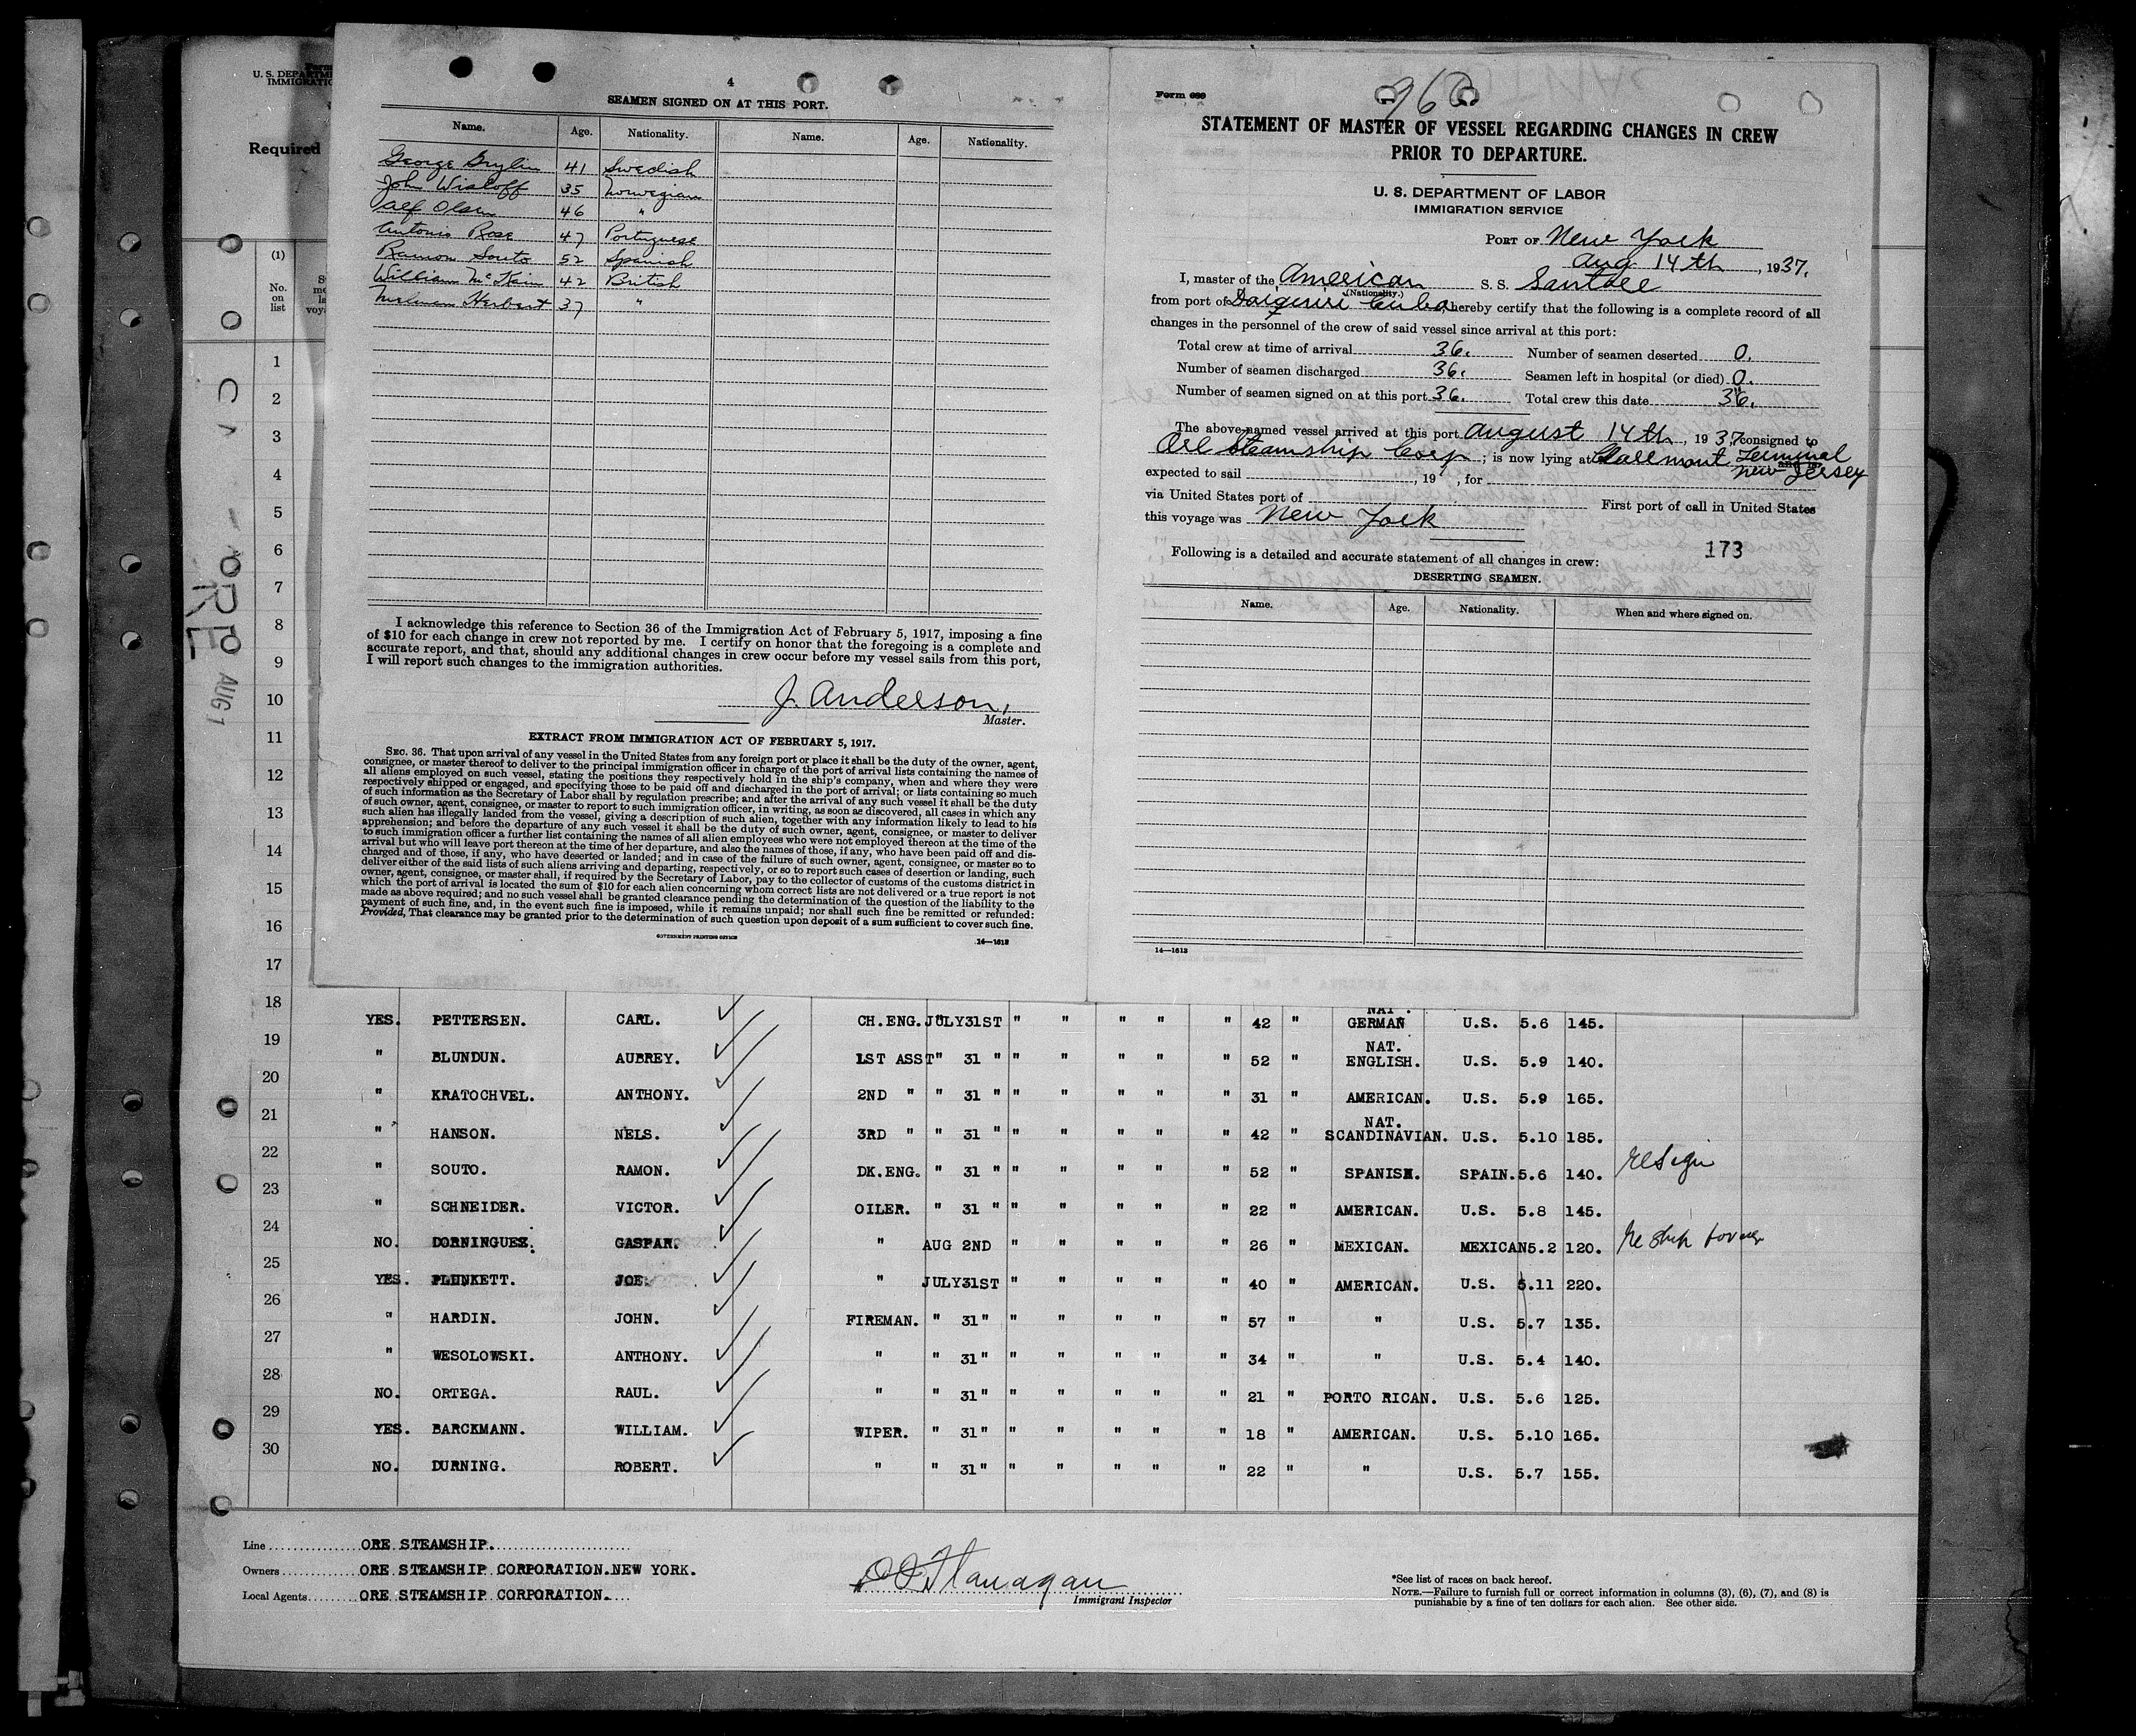 U. S. DEPARTM
IMMIGRATIO
Required
(1)
No.
on
list
4
SEAMEN SIGNED ON AT THIS PORT.
Name. Age. Nationality. Name. Age. Nationality.
George Grylin 41 Swedish
John Wisloff 35 Norwegian
Alf Olsen 46 "
Antonio Rose 47 Portuguese
Ramon Souto 52 Spanish
William McKain 42 British
Herbert 37 "
I acknowledge this reference to Section 36 of the Immigration Act of February 5, 1917, imposing a fine
of $10 for each change in crew not reported by me. I certify on honor that the foregoing is a complete and
accurate report, and that, should any additional changes in crew occur before my vessel sails from this port,
I will report such changes to the immigration authorities.
J. Anderson,
Master.
EXTRACT FROM IMMIGRATION ACT OF FEBRUARY 5, 1917.
SEC. 36. That upon arrival of any vessel in the United States from any foreign port or place it shall be the duty of the owner, agent,
consignee, or master thereof to deliver to the principal immigration officer in charge of the port of arrival lists containing the names of
all aliens employed on such vessel, stating the positions they respectively hold in the ship's company, when and where they were
respectively shipped or engaged, and specifying those to be paid off and discharged in the port of arrival; or lists containing so much
of such information as the Secretary of Labor shall by regulation prescribe; and after the arrival of any such vessel it shall be the duty
of such owner, agent, consignee, or master to report to such immigration officer, in writing, as soon as discovered, all cases in which any
such alien has illegally landed from the vessel, giving a description of such alien, together with any information likely to lead to his
apprehension; and before the departure of any such vessel it shall be the duty of such owner, agent, consignee, or master to deliver
to such immigration officer a further list containing the names of all alien employees who were not employed thereon at the time of the
arrival but who will leave port thereon at the time of her departure, and also the names of those, if any, who have been paid off and dis-
charged and of those, if any, who have deserted or landed; and in case of the failure of such owner, agent, consignee, or master so to
deliver either of the said lists of such aliens arriving and departing, respectively, or so to report such cases of desertion or landing, such
owner, agent, consignee, or master shall, if required by the Secretary of Labor, pay to the collector of customs of the customs district in
which the port of arrival is located the sum of $10 for each alien concerning whom correct lists are not delivered or a true report is not
made as above required; and no such vessel shall be granted clearance pending the determination of the question of the liability to the
payment of such fine, and, in the event such fine is imposed, while it remains unpaid; nor shall such fine be remitted or refunded:
Provided, That clearance may be granted prior to the determination of such question upon deposit of a sum sufficient to cover such fine.
GOVERNMENT PRINTING OFFICE 14—1613
Form 689
960
STATEMENT OF MASTER OF VESSEL REGARDING CHANGES IN CREW
PRIOR TO DEPARTURE.
U. S. DEPARTMENT OF LABOR
IMMIGRATION SERVICE
PORT OF New York
Aug 14th, 1937.
I, master of the American S. S. Santore
(Nationality.)
from port of Daiquiri Cuba, hereby certify that the following is a complete record of all
changes in the personnel of the crew of said vessel since arrival at this port:
Total crew at time of arrival 36. Number of seamen deserted 0.
Number of seamen discharged 36. Seamen left in hospital (or died) 0.
Number of seamen signed on at this port 36. Total crew this date 36.
The above-named vessel arrived at this port August 14th, 1937, consigned to
Ore Steamship Corp; is now lying at Claremont Terminal
New Jersey
expected to sail , 19 , for
via United States port of First port of call in United States
this voyage was New York
Following is a detailed and accurate statement of all changes in crew: 173
DESERTING SEAMEN.
Name. Age. Nationality. When and where signed on.
14—1613
ORE
AUG 1
1
2
3
4
5
6
7
8
9
10
11
12
13
14
15
16
17
18
YES. PETTERSEN. CARL. CH.ENG. JULY31ST " " " " " 42 " NAT. GERMAN U.S. 5.6 145.
19
" BLUNDUN. AUBREY. 1ST ASST " 31 " " " " " " 52 " NAT. ENGLISH. U.S. 5.9 140.
20
" KRATOCHVEL. ANTHONY. 2ND " " 31 " " " " " " 31 " AMERICAN. U.S. 5.9 165.
21
" HANSON. NELS. 3RD " " 31 " " " " " " 42 " NAT. SCANDINAVIAN. U.S. 5.10 185.
22
" SOUTO. RAMON. DK.ENG. " 31 " " " " " " 52 " SPANISH. SPAIN. 5.6 140. resign
23
" SCHNEIDER. VICTOR. OILER. " 31 " " " " " " 22 " AMERICAN. U.S. 5.8 145.
24
NO. DORNINGUEZ. GASPAR. " AUG 2ND " " " " " 26 " MEXICAN. MEXICAN 5.2 120. reship
25
YES. PLUNKETT. JOE. " JULY31ST " " " " " 40 " AMERICAN. U.S. 5.11 220.
26
" HARDIN. JOHN. FIREMAN. " 31" " " " " " 57 " " U.S. 5.7 135.
27
" WESOLOWSKI. ANTHONY. " " 31" " " " " " 34 " " U.S. 5.4 140.
28
NO. ORTEGA. RAUL. " " 31" " " " " " 21 " PORTO RICAN. U.S. 5.6 125.
29
YES. BARCKMANN. WILLIAM. WIPER. " 31" " " " " " 18 " AMERICAN. U.S. 5.10 165.
30
NO. DURNING. ROBERT. " " 31" " " " " " 22 " " U.S. 5.7 155.
Line ORE STEAMSHIP.
Owners ORE STEAMSHIP CORPORATION.NEW YORK.
Local Agents ORE STEAMSHIP CORPORATION.
Flanagan
Immigrant Inspector
*See list of races on back hereof.
NOTE.—Failure to furnish full or correct information in columns (3), (6), (7), and (8) is
punishable by a fine of ten dollars for each alien. See other side.